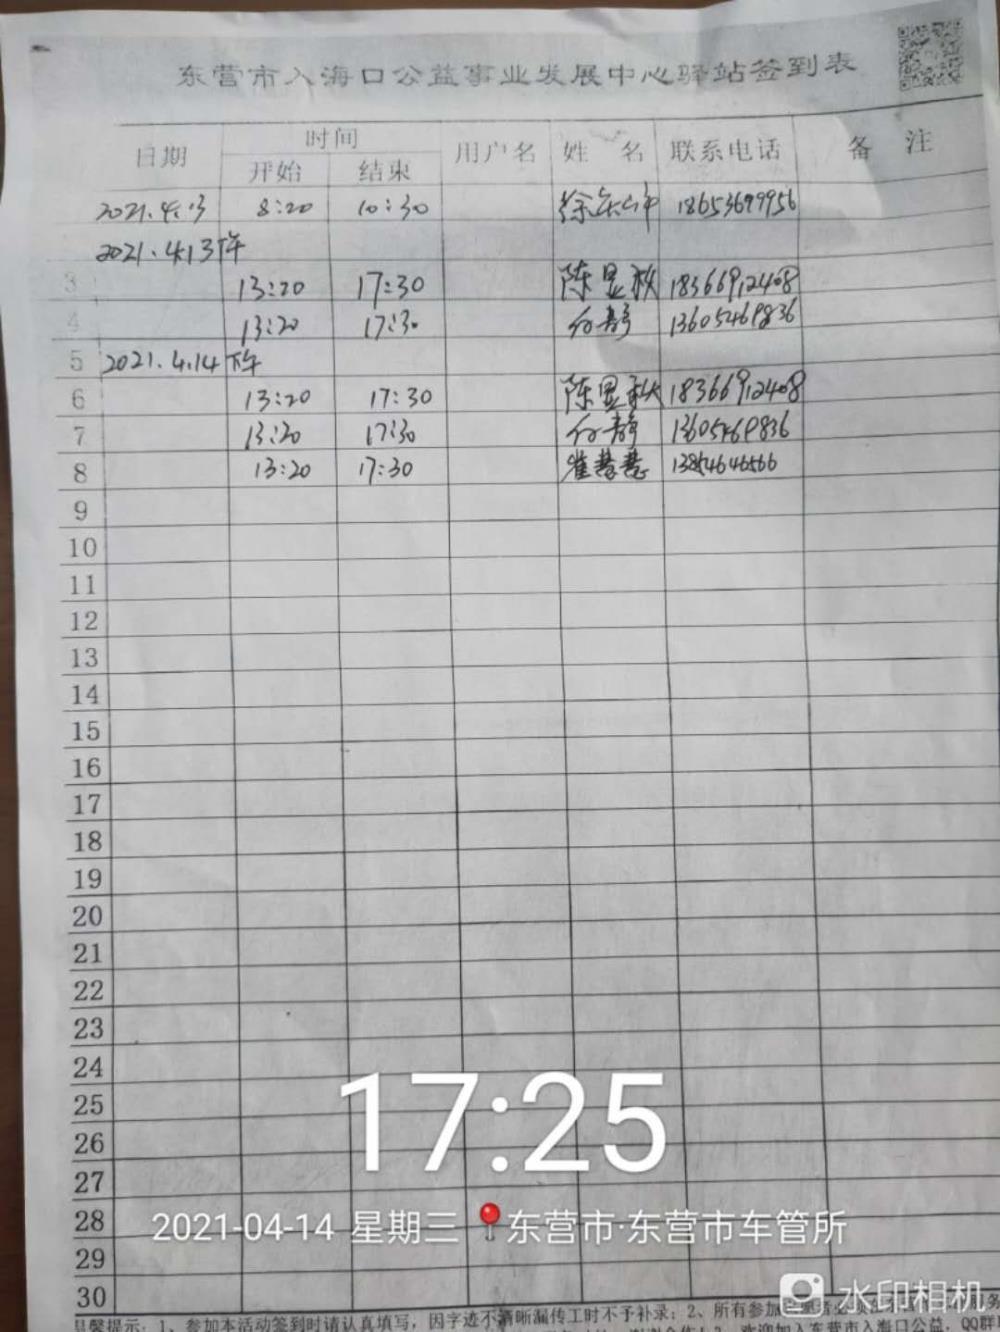 东营市入海口公益事业发展中心驿站签到表
日期 时间 用户名 姓 名 联系电话 备 注
开始 结束
2021.4.13 8:20 10:30 18653699956
2021.4.13下午
3 13:20 17:30 陈显秋 18366912408
4 13:20 17:30 付静 13605469836
5 2021.4.14下午
6 13:20 17:30 陈显秋 18366912408
7 13:20 17:30 付静 13605469836
8 13:20 17:30 崔慧慧 13854646566
9
10
11
12
13
14
15
16
17
18
19
20
21
22
23
24
25
17:25
26
27
28
2021-04-14 星期三 东营市·东营市车管所
29
30
水印相机
温馨提示：1、参加本活动签到时请认真填写，因字迹不清晰漏传工时不予补录；2、所有参加